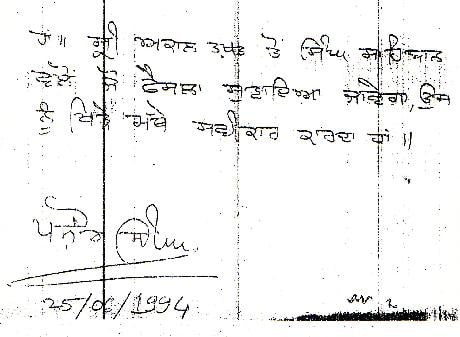 ਹਾਂ॥ ਸ਼੍ਰੀ ਅਕਾਲ ਤਖ਼ਤ ਤੋਂ ਸਿੰਘ ਸਾਹਿਬਾਨ
ਵੱਲੋਂ ਜੋ ਫੈਸਲਾ ਸੁਣਾਇਆ ਜਾਵੇਗਾ, ਉਸ
ਨੂੰ ਖਿੜੇ ਮੱਥੇ ਸਵੀਕਾਰ ਕਰਦਾ ਹਾਂ॥
ਸਿੰਘ
25/06/1994